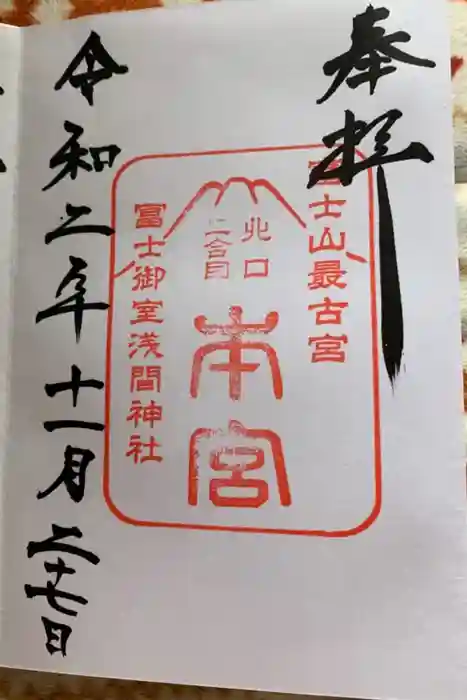 奉拝
富士山最古宮
北口
二合目
本宮
富士御室浅間神社
令和二年十一月二十七日